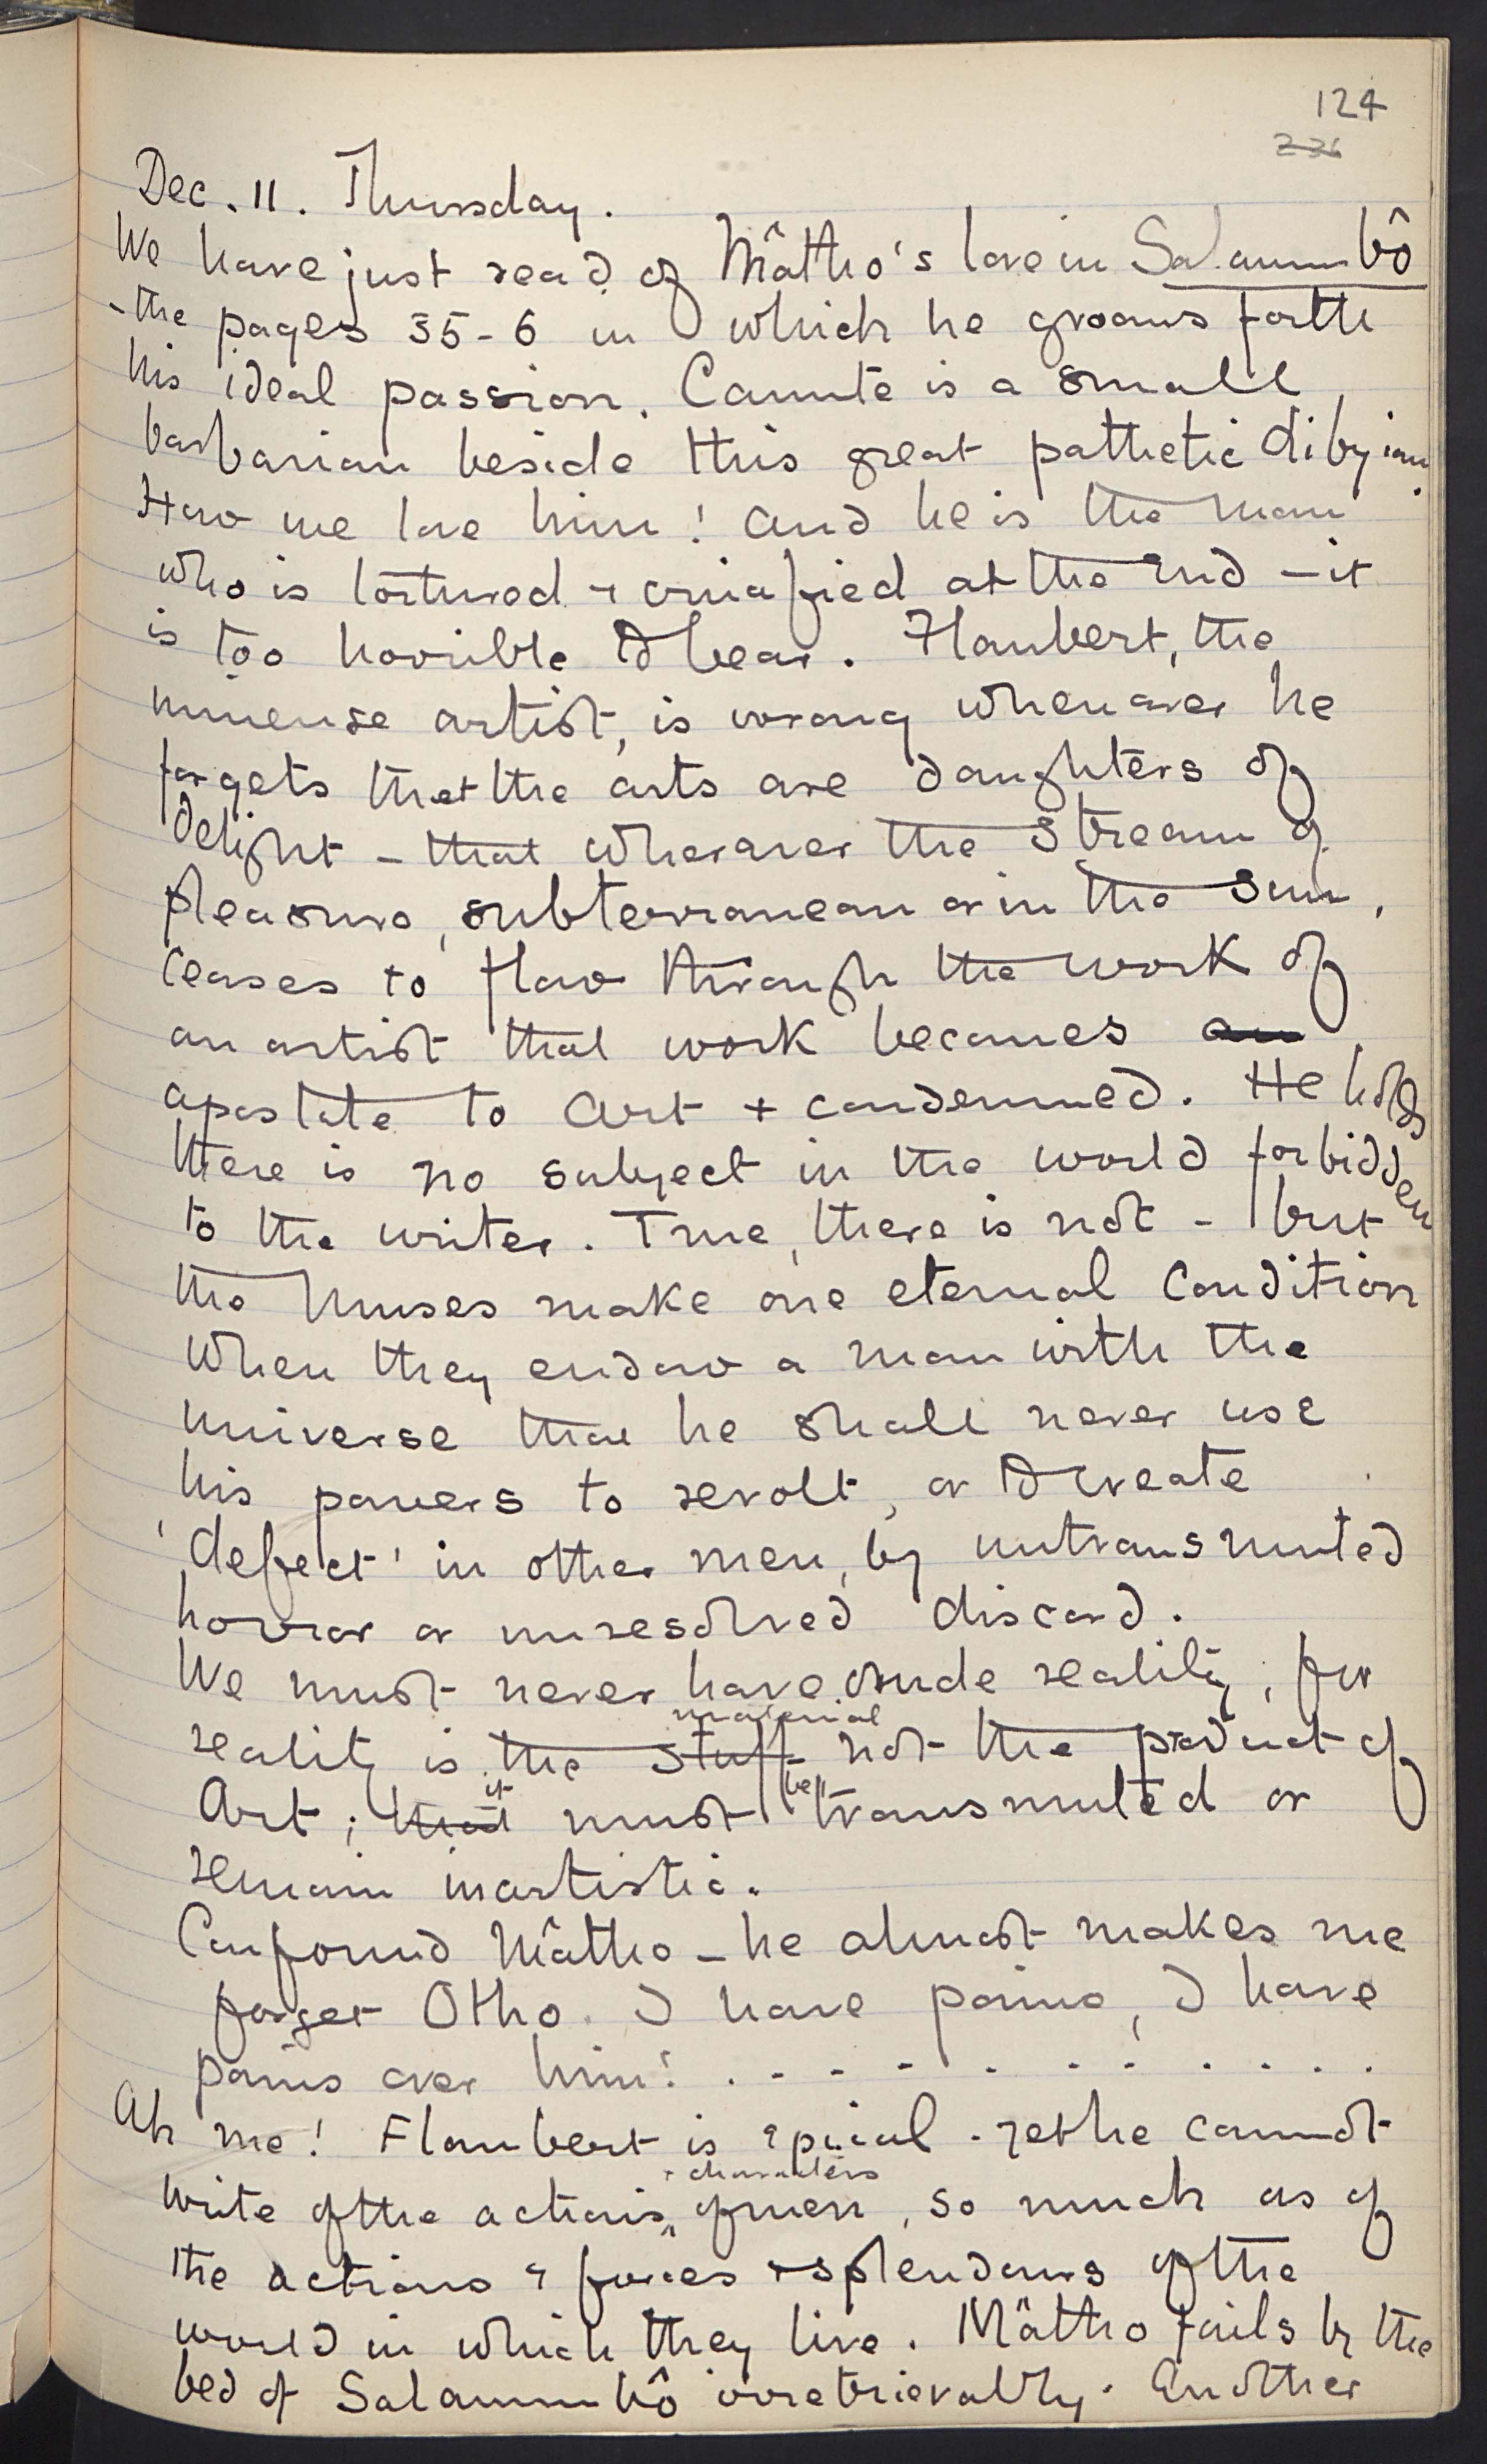 124
236
Dec. 11. Thursday.
We have just read of Mâtho's love in Salammbô
- the pages 35-6 in which he groans forth
his ideal passion. Canute is a small
barbarian beside this great pathetic Libyian.
How we love him! And he is the man
who is tortured & crucified at the end - it
is too horrible to bear. Flaubert, the
immense artist, is wrong whenever he
forgets that the arts are daughters of
delight - that wherever the stream of
pleasure, subterranean or in the sun,
ceases to flow through the work of
an artist that work becomes an
apostate to Art + condemned. He holds
there is no subject in the world forbidden
to the writer. True, there is not - but
the Muses make one eternal condition
when they endow a man with the
universe that he shall never use
his powers to revolt, or to create
'defect' in other men, by untransmuted
horror or unresolved discord.
We must never have crude reality; for
reality is the stuff material not the product of
Art; that it must be transmuted or
remain inartistic.
Confound Mâtho - he almost makes me
forget Otho. I have pains, I have
pains over him! . . . . . . . . . . .
Ah me! Flaubert is epical - yet he cannot
write of the actions & characters of men, so much as of
the actions & forces & splendours of the
world in which they live. Mâtho fails by the
bed of Salammbô irretrievably. Another